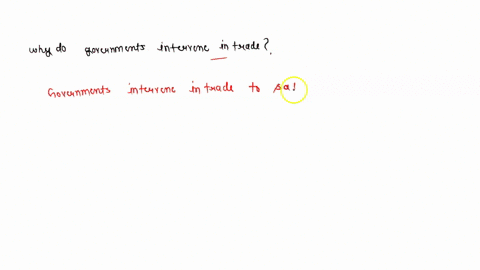 why do governments intervene in trade?.
Governments intervene in trade to sal